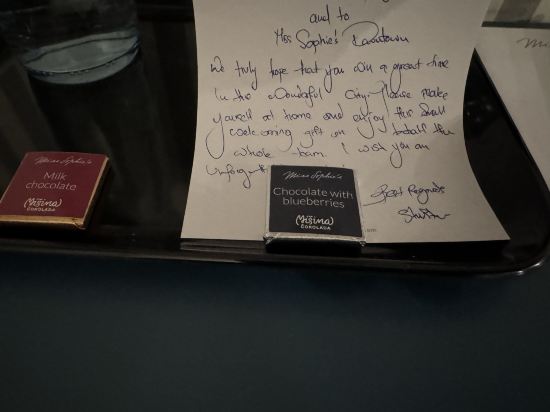 and to
Miss Sophie's
We truly hope that you have a great time
in the wonderful City. Please make
yourself at home and enjoy this small
welcoming gift on behalf the
whole team. I wish you an
Best Regards
Miss Sophie's
Milk
chocolate
Mišina
ČOKOLÁDA
Miss Sophie's
Chocolate with
blueberries
Mišina
ČOKOLÁDA